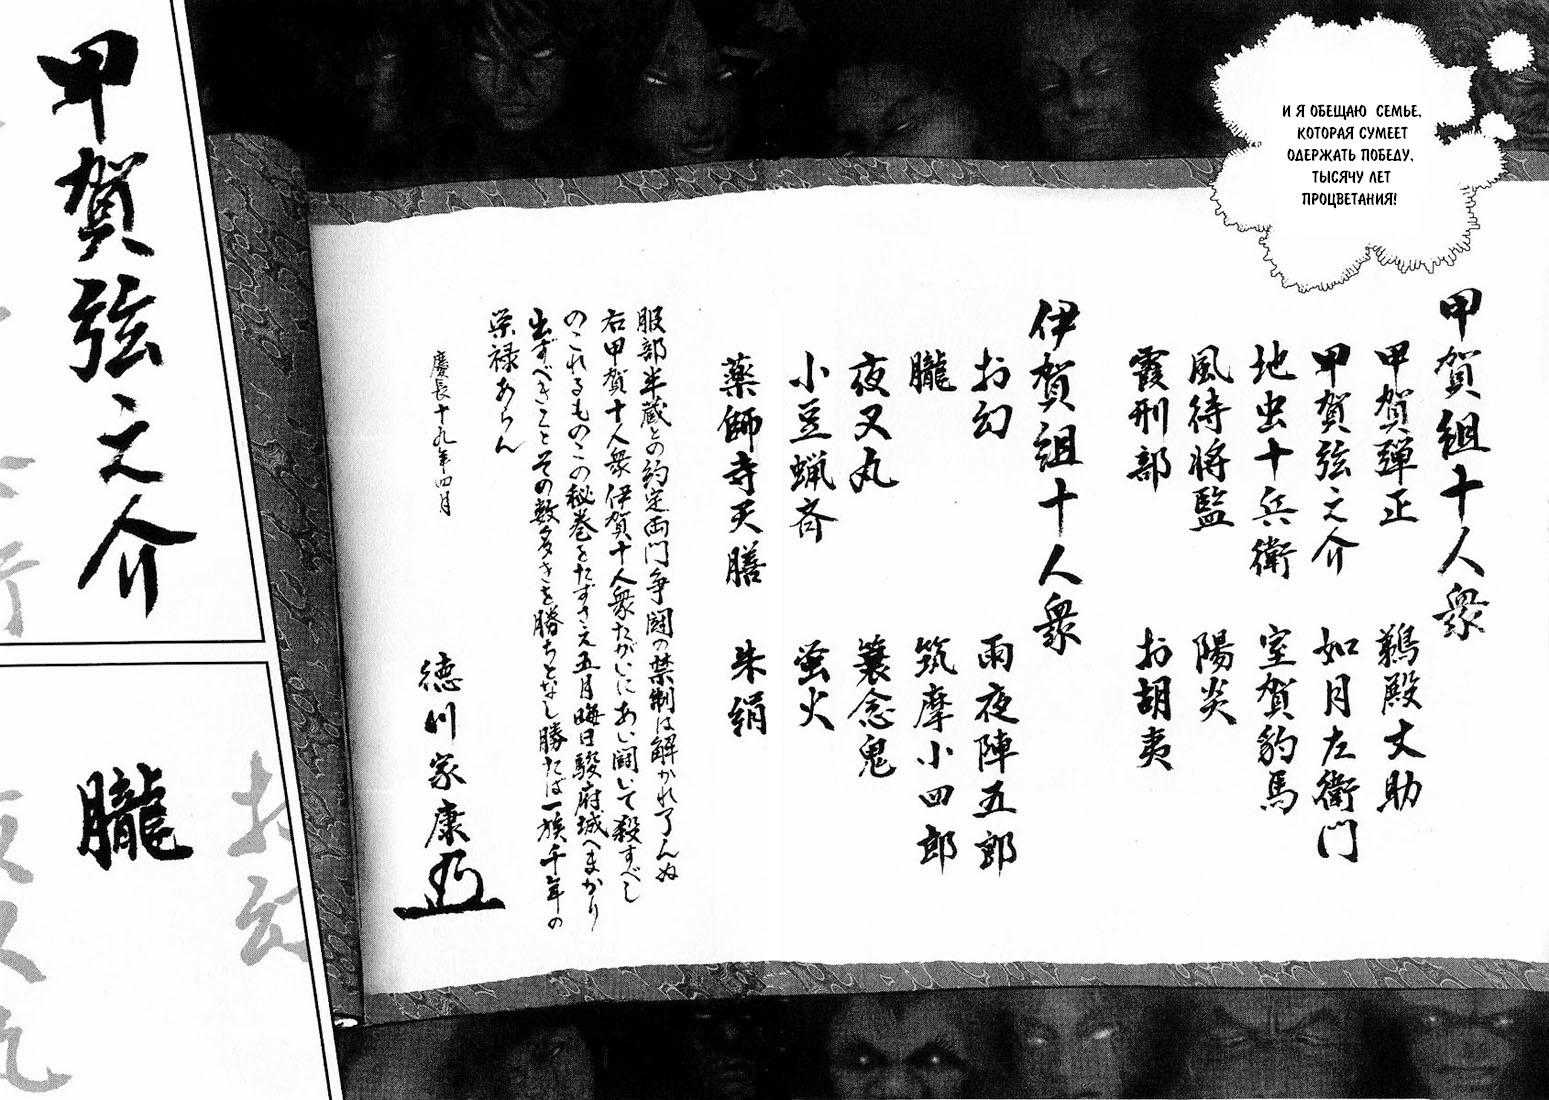 И Я ОБЕЩАЮ СЕМЬЕ,
КОТОРАЯ СУМЕЕТ
ОДЕРЖАТЬ ПОБЕДУ,
ТЫСЯЧУ ЛЕТ
ПРОЦВЕТАНИЯ!
甲賀組十人衆
甲賀弾正
鵜殿丈助
甲賀弦之介
如月左衛門
地虫十兵衛
室賀豹馬
風待将監
陽炎
霞刑部
お胡夷
伊賀組十人衆
お幻
雨夜陣五郎
朧
筑摩小四郎
夜叉丸
簑念鬼
小豆蝋斉
蛍火
薬師寺天膳
朱絹
服部半蔵との約定両門争闘の禁制は解かれ了んぬ
右甲賀十人衆伊賀十人衆たがいにあい闘いて殺すべし
のこれるものこの秘巻をたずさえ五月晦日駿府城へまかり
出ずべきことその数多きを勝ちとなし勝たば一族千年の
栄禄あらん
慶長十九年四月
徳川家康
甲賀弦之介
朧